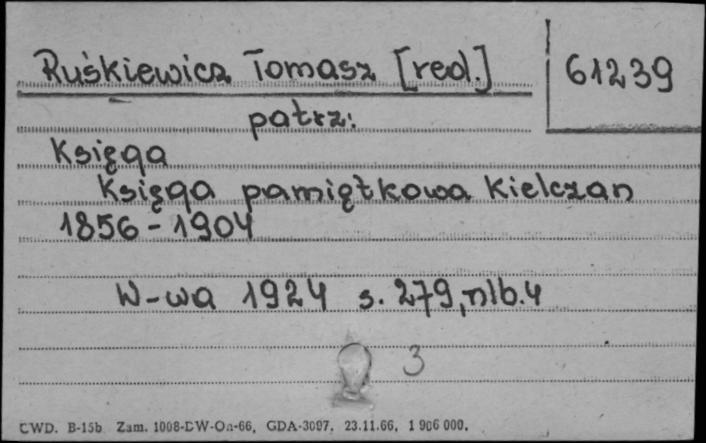 Ruśkiewicz Tomasz [red.]
61239
patrz:
Księga
Księga pamiątkowa Kielczan
1856-1904
W-wa 1924 s. 279, nlb. 4
3
CWD. B-15b Zam. 1008-DW-Oa-66, GDA-3097, 23.11.66, 1 906 000.